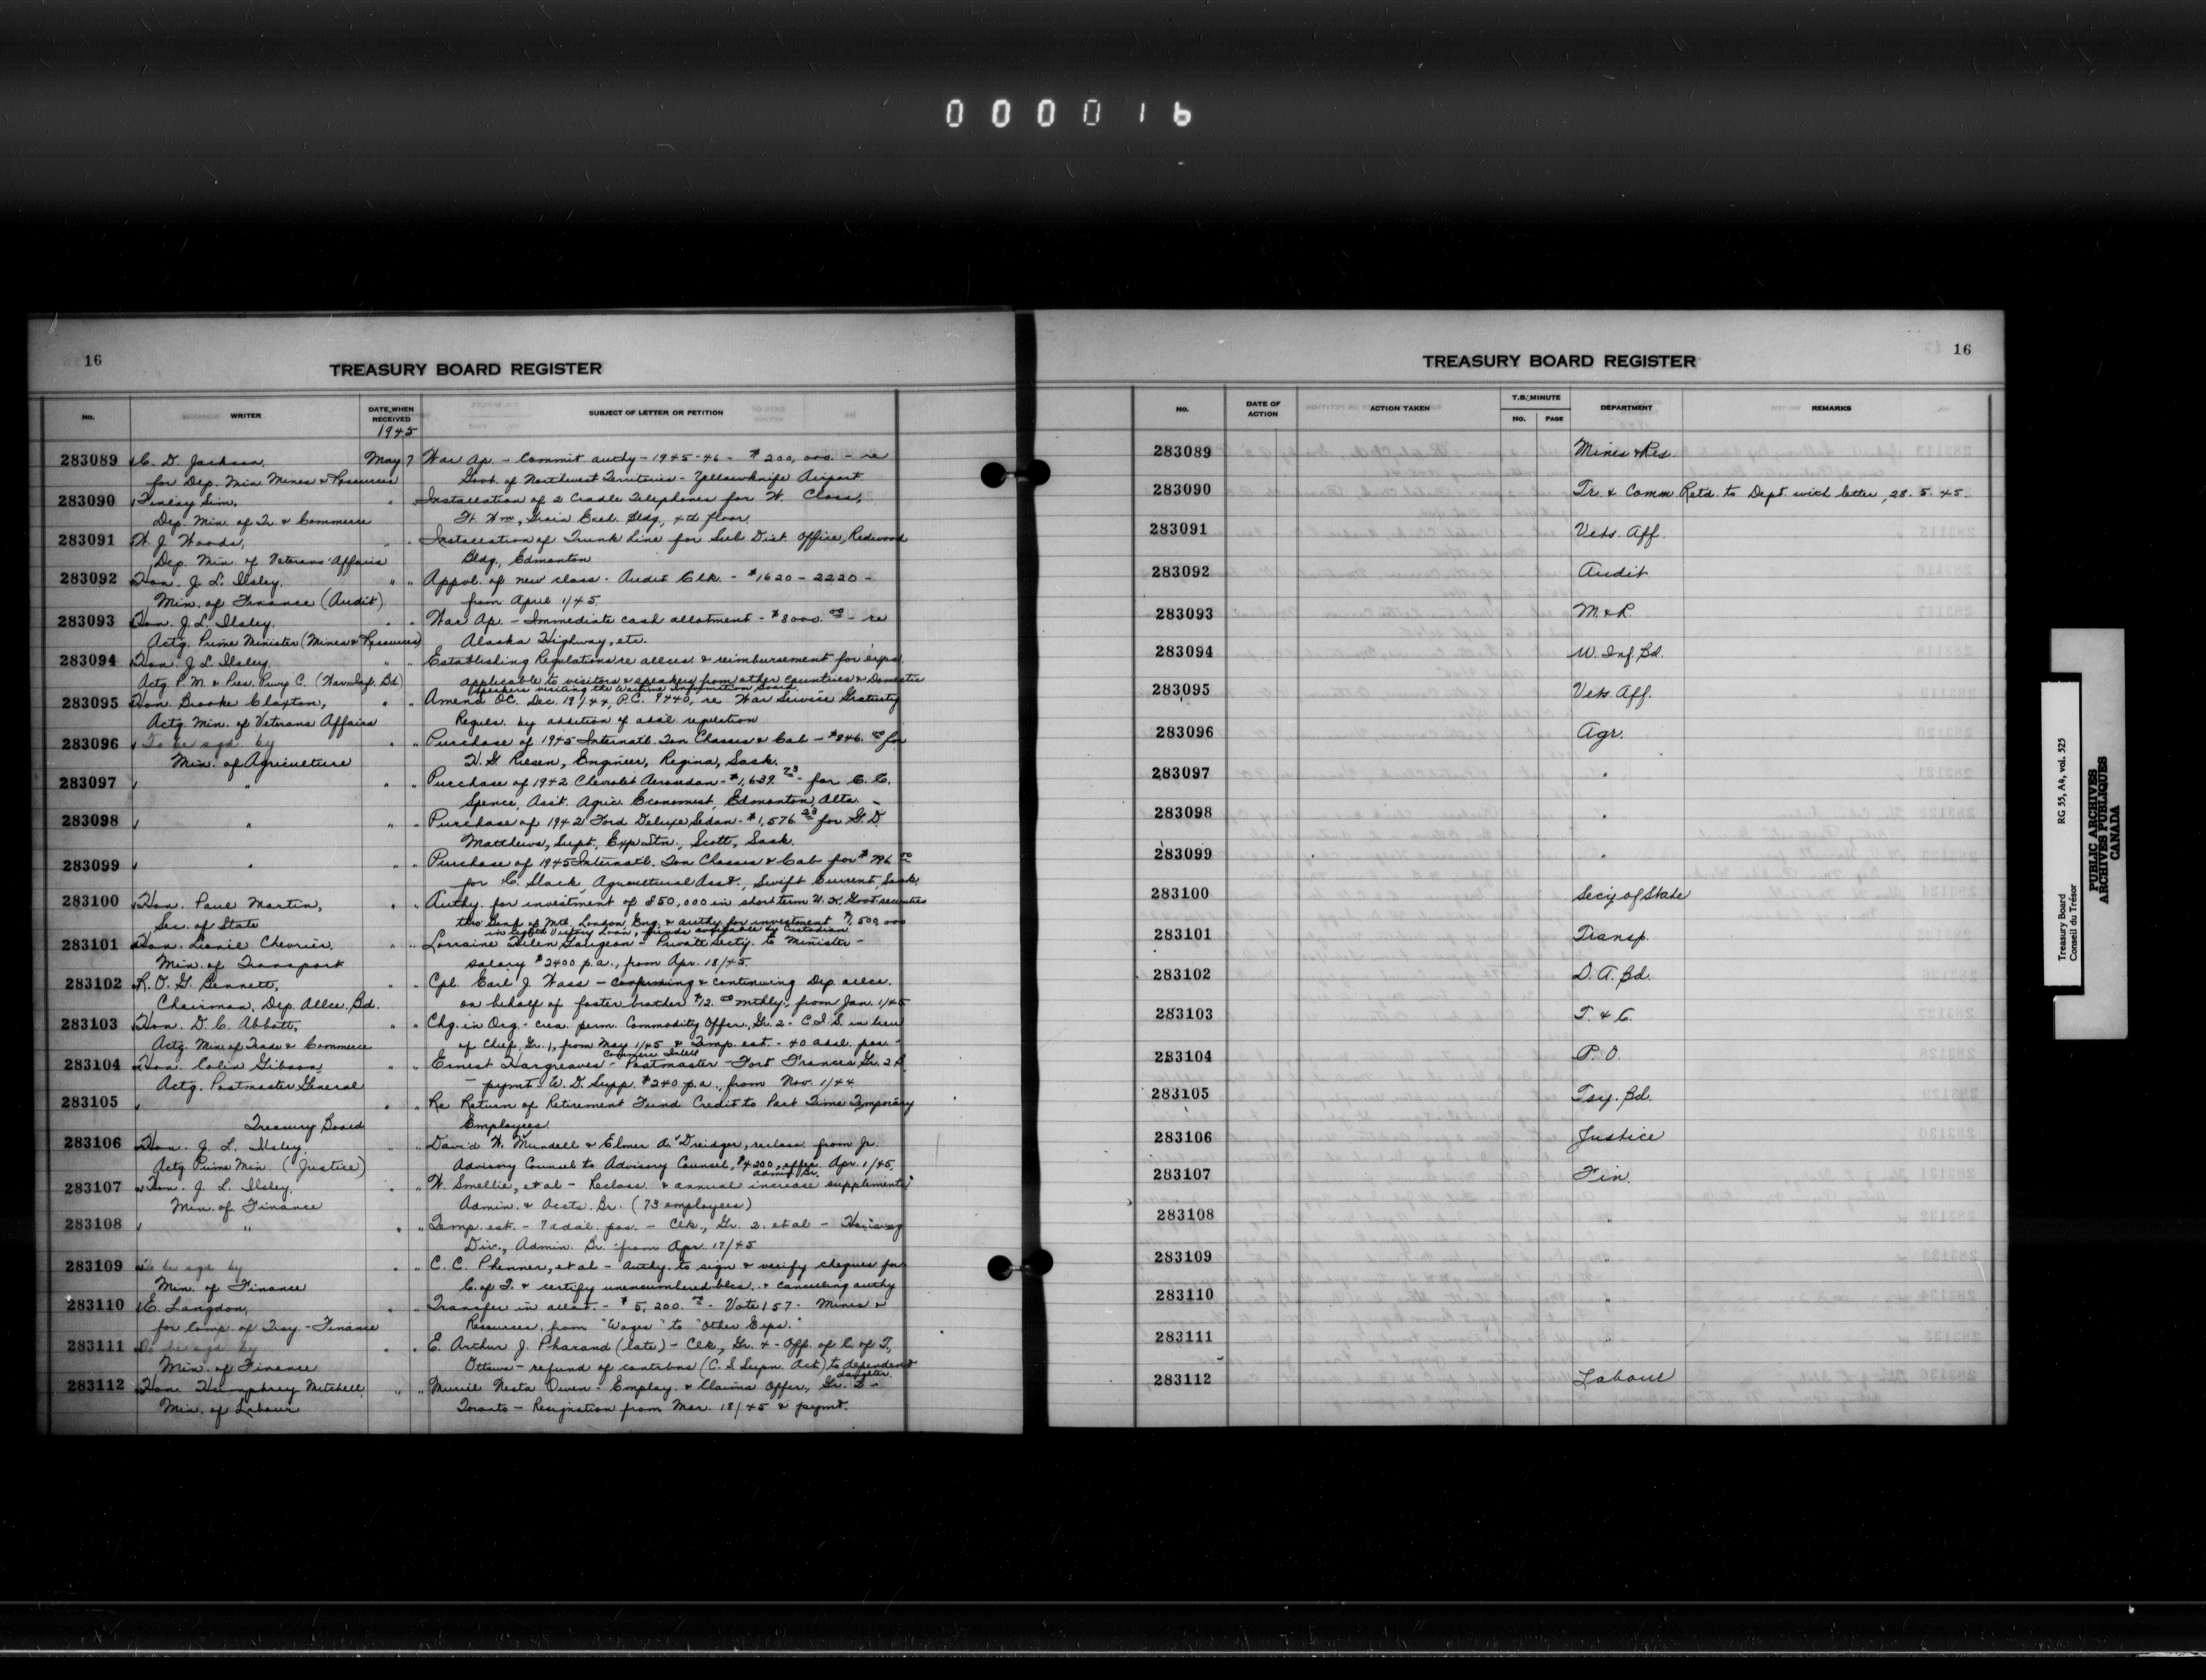 000016
16
TREASURY BOARD REGISTER
NO.
WRITER
DATE WHEN RECEIVED
SUBJECT OF LETTER OR PETITION
1945
283089 C. D. Jackson, May 7 War Ap. - Commit. authy - 1945-46 - $200,000. - re
for Dep. Min Mines & Resources Govt. of Northwest Territories - Yellowknife Airport
283090 Finlay Sim, " " Installation of 2 Cradle Telephones for W. Class,
Dep. Min. of Tr. & Commerce Ft. Wm, Grain Exch. Bldg, 4th floor.
283091 W. S. Woods, " " Installation of Trunk Line for Sub Dist Office, Redwood
Dep. Min. of Veterans' Affairs Bldg, Edmonton
283092 Hon. J. L. Ilsley, " " Appvl. of new class - Audit Clk. - $1620 - 2220 -
Min. of Finance (Audit) from April 1/45.
283093 Hon. J. L. Ilsley, " " War Ap. - Immediate cash allotment - $8000.00 - re
Actg. Prime Minister (Mines & Resources) Alaska Highway, etc.
283094 Hon. J. L. Ilsley " " Establishing Regulations re allces. & reimbursement for exps.
Actg P. M. & Pres. Privy C. (War Inf. Bd) applicable to visitors & speakers from other countries & Domestic
Speakers visiting the Wartime Information Board.
283095 Hon. Brooke Claxton, " " Amend OC. Dec. 19/44, P.C. 9440, re War Service Gratuity
Actg. Min. of Veterans Affairs Regula. by addition of addl. regulation
283096 To be sgd. by " " Purchase of 1945 Internatl. Ton Chassis & Cab - $846.00 for
Min. of Agriculture H. G Riesen, Engineer, Regina, Sask.
283097 " " " Purchase of 1942 Chevrolet Aerosedan - $1,639.73 - for C. C.
Spence, Asst. Agric. Economist, Edmonton, Alta. -
283098 " " " Purchase of 1942 Ford Deluxe Sedan - $1,576.23 for G. D.
Matthews, Supt., Exp Stn., Scott, Sask.
283099 " " " Purchase of 1945 Internatl. Ton Chassis & Cab for $796.00
for C. Slack, Agricultural Asst., Swift Current, Sask.
283100 Hon. Paul Martin, " " Authy. for investment of £50,000 in short term U. K. Govt. securities
Sec. of State thro' Bank of Mtl, London, Eng. & authy for investment $1,500,000
in Eighth Victory Loan, funds available by Custodian
283101 Hon. Lionel Chevrier, " " Lorraine Helen Gougeon - Private Secty. to Minister -
Min. of Transport salary $2400 p.a., from Apr. 18/45.
283102 R. O. G. Bennett, " " Cpl. Earl J. Wass - Confirming & continuing Dep. allce.
Chairman, Dep. Allce. Bd. on behalf of foster brother $12.00 mthly. from Jan. 1/45
283103 Hon. D. C. Abbott, " " Chg. in Org. - crea. perm. Commodity Offer., Gr. 2 - C. I. S. in lieu
Actg. Min of Trade & Commerce of Chief, Gr. 1, from May 1/45 & Temp. est. - 40 addl. pos. -
Commerc Intell
283104 Hon. Colin Gibson, " " Ernest Hargreaves - Postmaster - Fort Frances Gr. 2 B
Actg. Postmaster General - pymt. W. D. Supp. $240 p.a., from Nov. 1/44
283105 " " Re Return of Retirement Fund Credit to Part Time Temporary
Treasury Board Employees.
283106 Hon. J. L. Ilsley, " " David W. Mundell & Elmer A. Dreidger, reclass. from Jr.
Actg Prime Min. (Justice) Advisory Counsel to Advisory Counsel, $4200, effec. Apr. 1/45.
Admin. Br.
283107 Hon. J. L. Ilsley. " " W. Smellie, et al - Reclass. & annual increase supplements
Min. of Finance Admin. & Accts. Br. (73 employees)
283108 " " " Temp. est. - 7 addl. pos. - Clk., Gr. 2, et al - Housing
Div., Admin. Br. - from Apr. 17/45
283109 To be sgd by " " C. C. Phenner, et al - Authy. to sign & verify cheques for
Min. of Finance C. of T. & certify unencumbered blcs. & cancelling authy
283110 E. Langdon, " " Transfer in allot. - $5,200.00 - Vote 157 - Mines &
for Comp. of Tsy. - Finance Resources, from "Wages" to "Other Exps."
283111 To be sgd by " " E. Arthur J. Pharand (late) - Clk., Gr. 4 - Off. of C. of T.,
Min. of Finance Ottawa - refund of contribns (C. S Supn. Act) to dependent
daughter
283112 Hon. Humphrey Mitchell, " " Muriel Nesta Owen - Employ. & Claims Offer, Gr. 2 -
Min. of Labour Toronto - Resignation from Mar. 18/45 & pymt.
16
TREASURY BOARD REGISTER
NO.
DATE OF ACTION
ACTION TAKEN
T.B. MINUTE
NO. PAGE
DEPARTMENT
REMARKS
283089 Mines & Res.
283090 Tr. & Comm. Retd. to Dept. with letter, 28. 5. 45.
283091 Vets. Aff.
283092 Audit
283093 M. & R.
283094 W. Inf. Bd.
283095 Vets. Aff.
283096 Agr.
283097 "
283098 "
283099 "
283100 Secy of State
283101 Transp.
283102 D. A. Bd.
283103 T. & C.
283104 P. O.
283105 Tsy. Bd.
283106 Justice
283107 Fin.
283108 "
283109 "
283110 "
283111 "
283112 Labour
Treasury Board RG 55, A4, vol. 525
Conseil du Trésor
PUBLIC ARCHIVES
ARCHIVES PUBLIQUES
CANADA